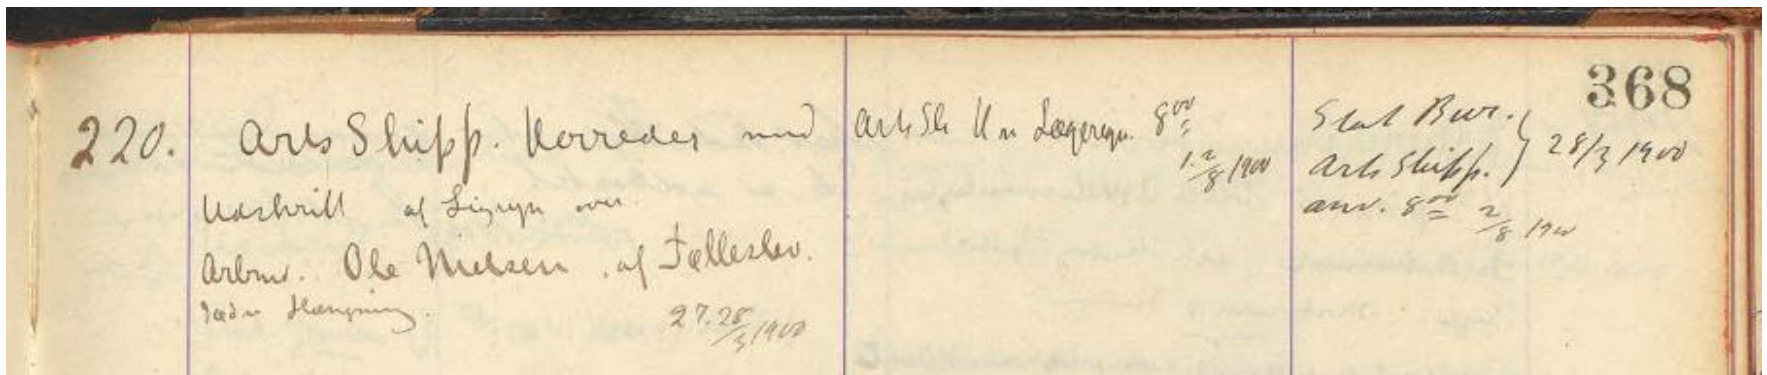 368
220. Arts Skipp. Horreder med
Udskrift af Ligsyn over
Arbmd. Ole Nielsen af Tølleslev.
død v Hængning.
27.28/3 1900
Arts Sk
8 00
1.2/8 1900
Stat Bur.
Arts Skipp. } 28/3 1900
anv. 8 00 2/8 1900